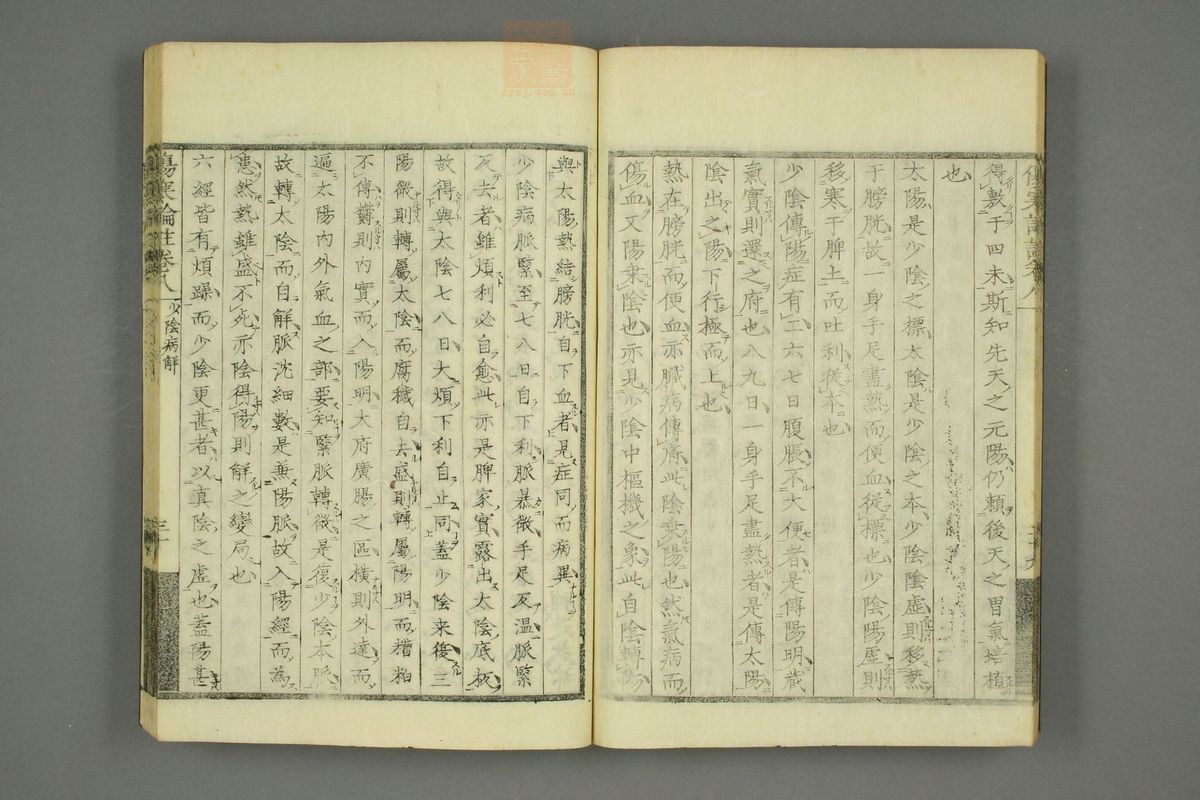 得敷于四末斯知先天之元陽仍賴後天之胃氣培植
也
太陽是少陰之標太陰是少陰之本少陰陰虛則移熱
于膀胱故一身手足盡熱而便血從標也少陰陽虛則
移寒于脾土而吐利從本也
少陰傳陽症有二六七日腹脹不大便者是傳陽明藏
氣實則還之府也八九日一身手足盡熱者是傳太陽
陰出之陽下行極而上也
熱在膀胱而便血亦臓病傳府此陰乘陽也然氣病而
傷血又陽乘陰也亦見少陰中樞機之象此自陰轉陽
與太陽熱結膀胱自下血者見症同而病異
少陰病脈緊至七八日自下利脈暴微手足反温脈緊
反去者雖煩利必自愈此亦是脾家實露出太陰底板
故得與太陰七八日大煩下利自止同蓋少陰来復三
陽微則轉屬太陰而腐穢自去盛則轉屬陽明而糟粕
不傳轉則內實而入陽明大府廣腸之區橫則外達而
遍太陽內外氣血之部要知緊脈轉微是復少陰本脈
故轉太陰而自解脈沈細數是兼陽脈故入陽經而為
患然熱雖盛不死亦陰得陽則解之變局也
六經皆有煩躁而少陰更甚者以真陰之虛也蓋陽甚
傷寒論註卷八
少陰病解
三十